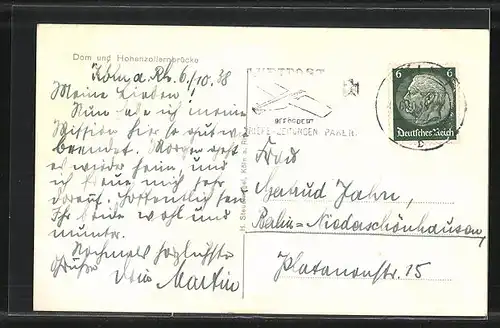 Dom und Hohenzollernbrücke
Köln a. Rh. 6./10. 38
Meine Lieben!
Nun habe ich meine
Mission hier so gut wie
beendet. Morgen geht
es wieder heim, und
ich freue mich sehr
darauf. Hoffentlich seid
Ihr beide wohl und
munter.
Nochmals herzlichste
Grüße
Dein Martin
H. Köln a. Rh.
LUFTPOST
BEFÖRDERT
BRIEFE-ZEITUNGEN PAKETE
6 6
Deutsches Reich
b
Frau
Gertrud Jahn,
Berlin=Niederschönhausen,
Platanenstr. 15